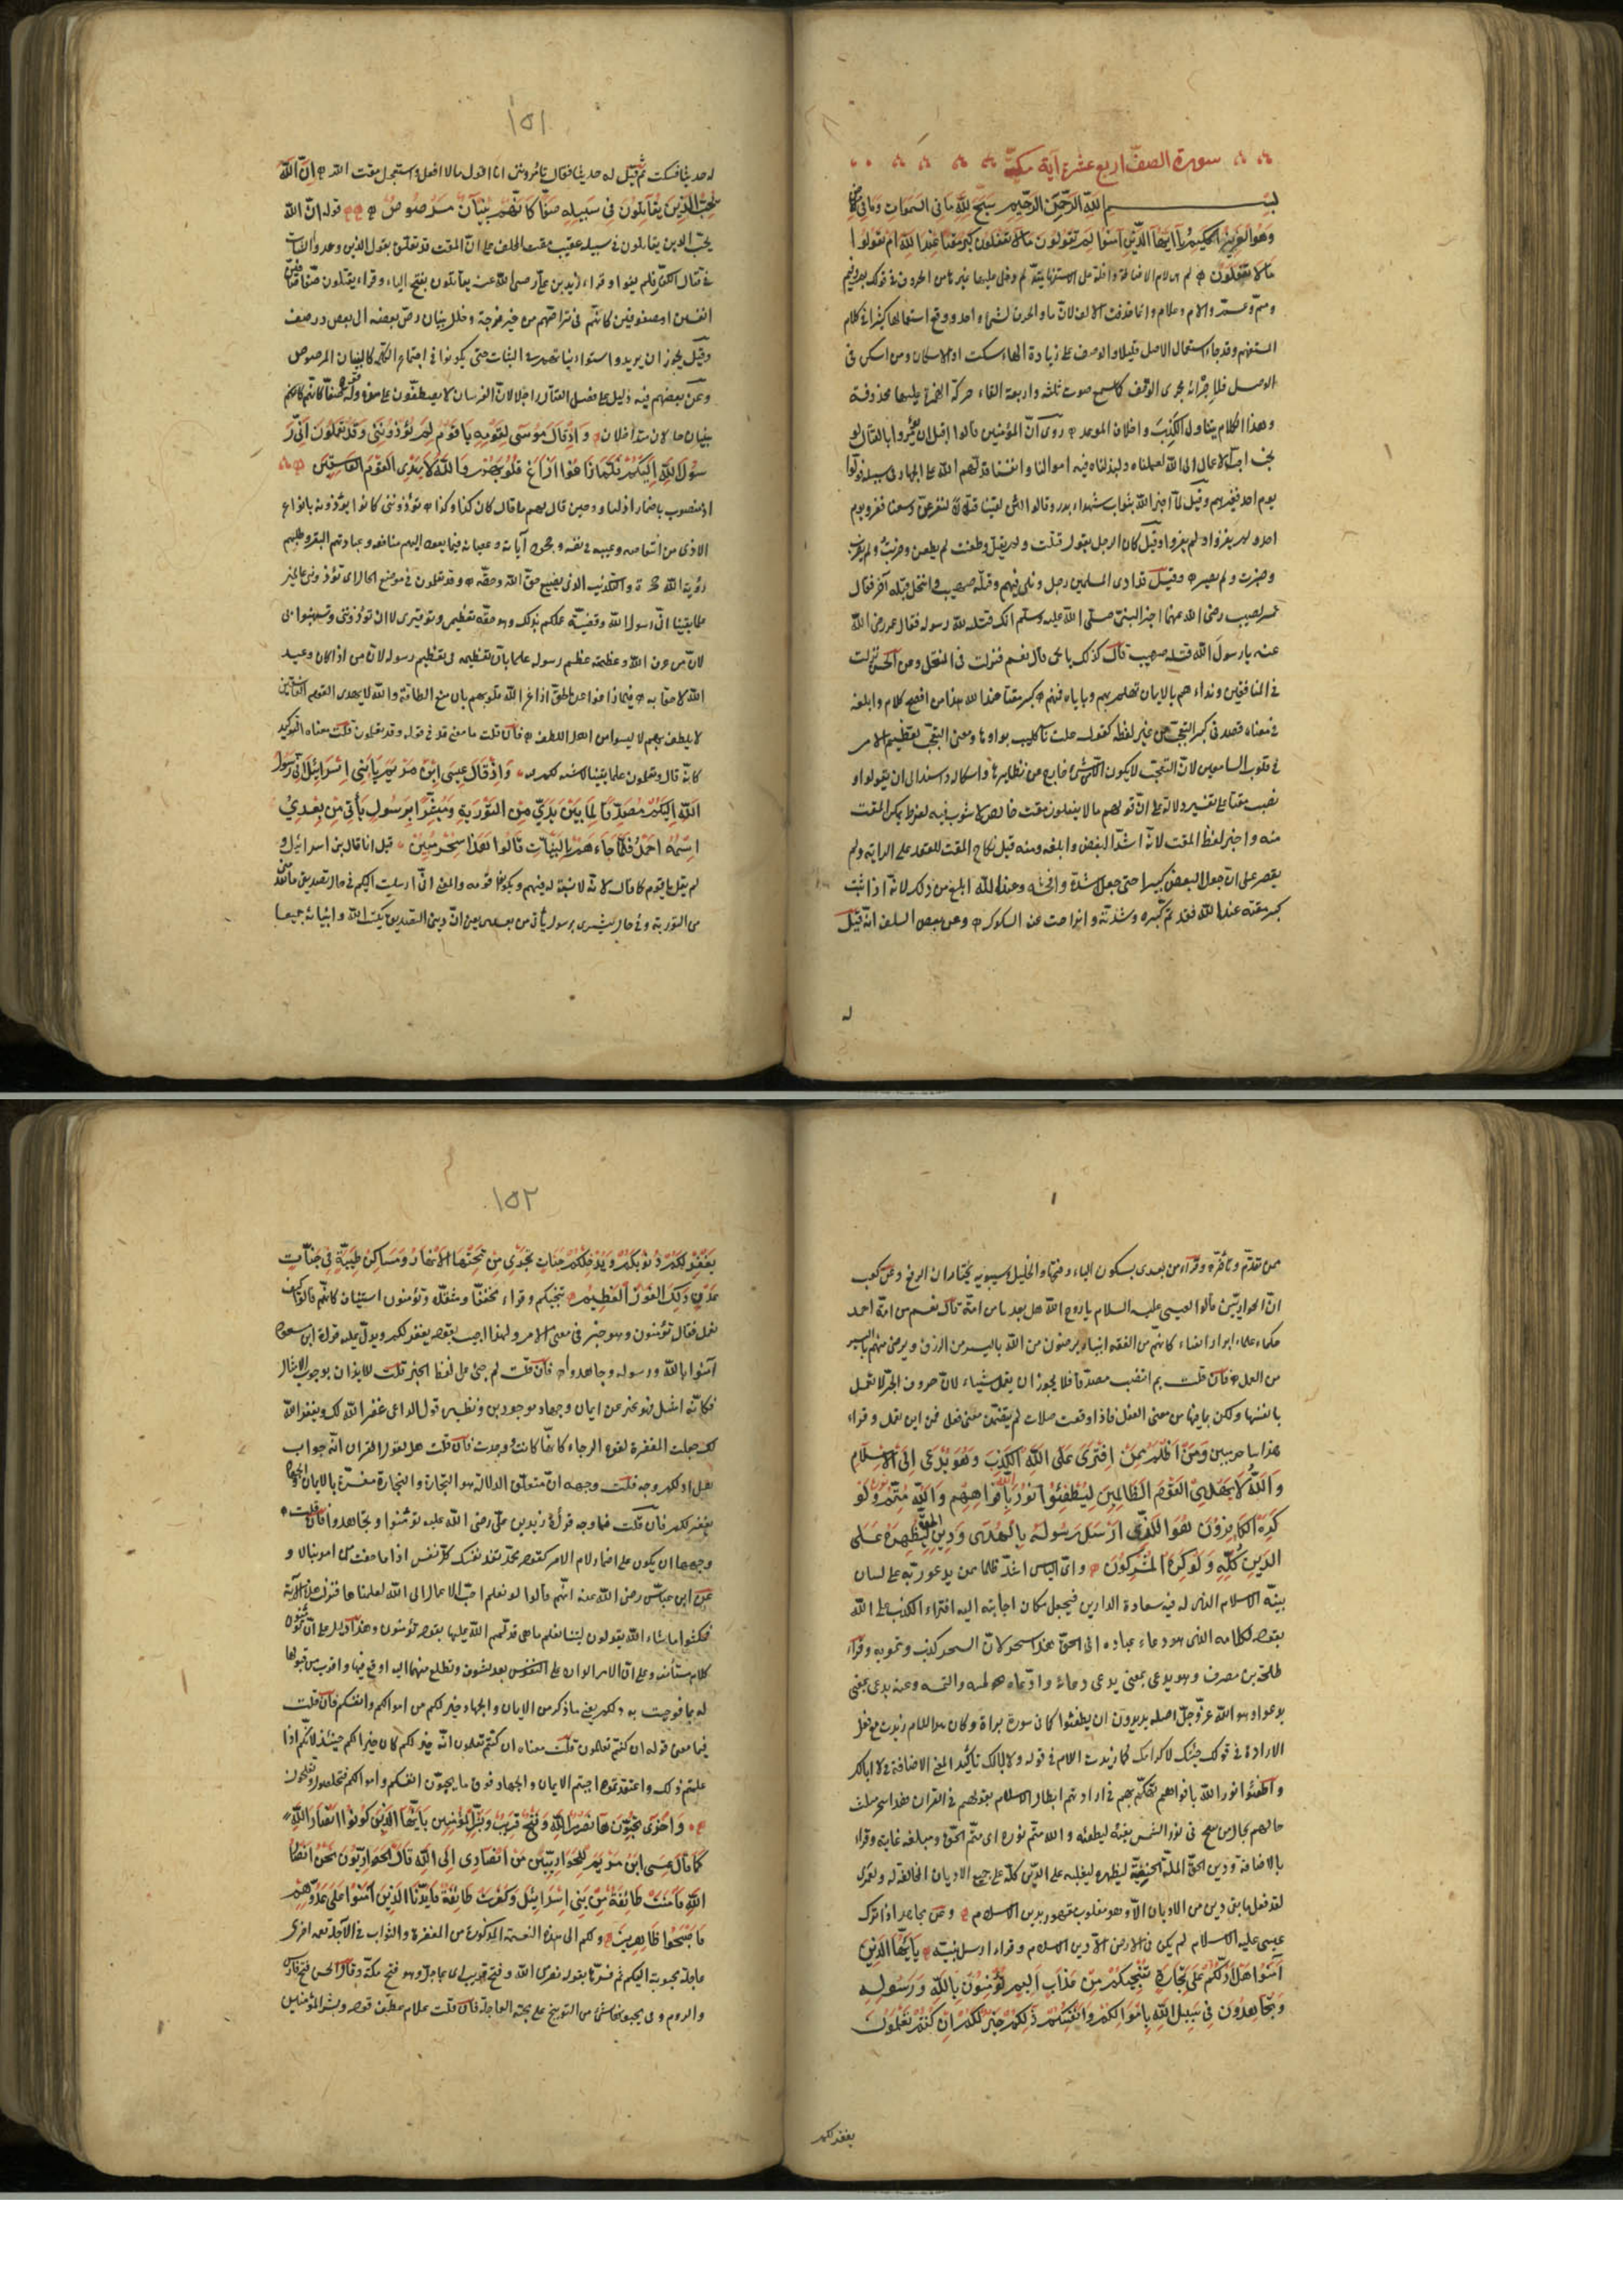 سورة الصف اربع عشرة آية مكية
بسم الله الرحمن الرحيم سبح لله ما في السموات وما في
وهو العزيز الحكيم يا ايها الذين آمنوا لم تقولون ما لا تفعلون كبر مقتا عند الله ان تقولوا
ما لا تفعلون لم هي لام الاضافة داخلة على ما الاستفهامية كما دخل عليها غيرها من الحروف في قولك بم وفيم
ومم وعم والام وعلام وانما حذفت الالف لان ما والحرف كشيء واحد ووقع استعمالها كثيرا في كلام
المستفهم وقد جاء استعمال الاصل قليلا والوقف على زيادة الهاء سكت او الاسكان ومن اسكن في
الوصل فلاجرائه مجرى الوقف كما سمع ثلثه واربعه القاء حركة الهمزة عليها محذوفة
وهذا الكلام يتناول الكذب واخلاف الموعد روى ان المؤمنين قالوا قبل ان يؤمروا بالقتال لو
احب الاعمال الى الله لعملناه ولبذلنا فيه اموالنا وانفسنا فدلهم الله على الجهاد في سبيله فولوا
يوم احد فعيرهم وقيل لما اخبر الله بثواب شهداء بدر قالوا لئن لقينا قتالا لنفرغن وسعنا ففروا يوم
احد ولم يفوا وقيل كان الرجل يقول قتلت ولم يقتل وطعنت ولم يطعن وضربت ولم يضرب
وصبرت ولم يصبر وقيل قد اذى المسلمين رجل ونكى فيهم وقتله صهيب وانتحل قتله آخر فقال
عمر لصهيب رضي الله عنهما اخبر النبي صلى الله عليه وسلم انك قتلته فقال انما قتلته لله ولرسوله فقال عمر رضي الله
عنه يا رسول الله قتله صهيب قال كذلك يا ابا يحيى قال نعم فنزلت في المنتحل وعن الحسن نزلت
في المنافقين ونداءهم بالايمان تهكم بهم وبايمانهم كبر مقتا عند الله هذا من افصح كلام وابلغه
في معناه قصد في كبر التعجب من غير لفظه كقوله غلت ناب كليب بواؤها ومعنى التعجب تعظيم الامر
في قلوب السامعين لان التعجب لا يكون الا من شيء خارج عن نظائره واشكاله واسند الى ان تقولوا و
نصب مقتا على تفسيره دلالة على ان قولهم ما لا يفعلون مقت خالص لا شوب فيه لفرط تمكن المقت
منه واختير لفظ المقت لانه اشد البغض وابلغه ومنه قيل نكاح المقت للعقد على الرابة ولم
يقتصر على ان جعل البغض كبيرا حتى جعل اشده وافحشه وعند الله ابلغ من ذلك لانه اذا ثبت
كبر مقته عند الله فقد تم كبره وشدته وانزاحت عنه الشكوك وعن بعض السلف انه قيل
له
١٥١
له حدثنا فسكت ثم قيل له حدثنا فقال تأمرونني ان اقول ما لا افعل فاستعجل مقت الله ان الله
يحب الذين يقاتلون في سبيله صفا كانهم بنيان مرصوص قوله ان الله
يحب الذين يقاتلون في سبيله عقيب مقت المخلف على ان المقت قد تعلق بقول الذين وعدوا الثبات
في قتال الكفار فلم يفوا وقراء زيد بن علي رضي الله عنه يقاتلون بفتح التاء وقرئ يقتلون صفا صافين
انفسهم او مصفوفين كانهم في تراصهم من غير فرجة وخلل بنيان رص بعضه الى بعض ورصف
وقيل يجوز ان يريد استواء نياتهم في الثبات حتى يكونوا في اجتماع الكلمة كالبنيان المرصوص
وعن بعضهم فيه دليل على فضل القتال راجلا لان الفرسان لا يصطفون على هذه وقوله صفا كانهم
بنيان حالان متداخلان واذ قال موسى لقومه يا قوم لم تؤذونني وقد تعلمون اني ر
سول الله اليكم فلما زاغوا ازاغ الله قلوبهم والله لا يهدي القوم الفاسقين
اذ منصوب باضمار اذكر او وحين قال لهم ما قال كان كذا وكذا تؤذونني كانوا يؤذونه بانواع
الاذى من انتقاصه وعيبه في نفسه وجحود آياته وعصيانه فيما يعود اليهم منافعه وعبادتهم البقر وطلبهم
رؤية الله جهرة والتكذيب الذي يضيع حق الله وحقه وقد تعلمون في موضع الحال اى تؤذونني عالمين
علما يقينا اني رسول الله وقضية علمكم بذلك وموجبه تعظيمي وتوقيري لا ان تؤذوني وتستهينوا بي
لان من عرف الله وعظمته عظم رسوله علما بان تعظيمه في تعظيم رسوله لان من اذاه كان وعيد
الله لاحقا به فلما زاغوا عن الحق ازاغ الله قلوبهم بان منع الطافه والله لا يهدي القوم الفاسقين
لا يلطف بهم لانهم ليسوا من اهل اللطف فان قلت ما معنى قد في قوله وقد تعلمون قلت معناه التوكيد
كانه قال وتعلمون علما يقينا لا شبهة لكم فيه واذ قال عيسى ابن مريم يا بني اسرائيل اني رسول
الله اليكم مصدقا لما بين يدي من التورية ومبشرا برسول يأتي من بعدي
اسمه احمد فلما جاءهم بالبينات قالوا هذا سحر مبين قيل انما قال بني اسرائيل و
لم يقل يا قوم كما قال موسى لانه لا نسب له فيهم فيكونوا قومه والمعنى ارسلت اليكم في حال تصديقي ما تقدمني
من التورية وفي حال تبشيري برسول يأتي من بعدي يعني ان ديني التصديق بكتب الله وانبيائه جميعا
ممن تقدم وتأخر وقرئ من بعدي بسكون الياء وفتحها والخليل وسيبويه يختاران الفتح وعن كعب
ان الحواريين قالوا لعيسى عليه السلام يا روح الله هل بعدنا من امة قال نعم من امة احمد
حكماء علماء ابرار اتقياء كانهم من الفقه انبياء يرضون من الله باليسير من الرزق ويرضى منهم باليسير
من العمل فان قلت بم انتصب مصدقا فلا يجوز ان يعمل شيئا لان حروف الجر لا تعمل
بانفسها ولكن بما فيها من معنى الفعل فاذا وقعت صلات لم يتضمن معنى فعل فمن اين تعمل وقراء
هذا ساحر مبين ومن اظلم ممن افترى على الله الكذب وهو يدعى الى الاسلام
والله لا يهدي القوم الظالمين ليطفئوا نور الله بافواههم والله متم نوره ولو
كره الكافرون هو الذي ارسل رسوله بالهدى ودين الحق ليظهره على
الدين كله ولو كره المشركون واي الناس اشد ظلما ممن يدعوه ربه على لسان
نبيه الاسلام الذي له فيه سعادة الدارين فيجعل مكان اجابته اليه افتراء الكذب على الله
بقوله لكلامه الذي هو دعاء عباده الى الحق هذا سحر لان السحر كذب وتمويه وقراء
طلحة بن مصرف وهو يدعى بمعنى يدعى دعاه وادعاه نحو لمسه والتمسه وعنه يدعي بمعنى
يدعو وهو الله عز وجل اصله يريدون ان يطفئوا كما في سورة براءة وكان هذا اللام زيدت مع فعل
الارادة في قولك جئتك لاكرامك كما زيدت اللام في قوله ولا ابا لك تأكيدا لمعنى الاضافة في لا اباك
واطفئوا نور الله بافواههم تهكم بهم في ارادتهم ابطال الاسلام بقولهم في القرآن هذا سحر مثلت
حالهم بحال من ينفخ في نور الشمس بفيه ليطفئه والله متم نوره اى متم الحق ومبلغه غايته وقراء
بالاضافة ودين الحق الملة الحنيفية ليظهره ليغلبه على الدين كله على جميع الاديان المخالفة له ولعمري
لقد فعل ما بقي دين من الاديان الا وهو مغلوب مقهور بدين الاسلام وعن مجاهد اذا نزل
عيسى عليه السلام لم يكن في الارض الا دين الاسلام وقراء ارسل نبيه يا ايها الذين
آمنوا هل ادلكم على تجارة تنجيكم من عذاب اليم تؤمنون بالله ورسوله
وتجاهدون في سبيل الله باموالكم وانفسكم ذلكم خير لكم ان كنتم تعلمون
يغفر لكم
١٥٢
يغفر لكم ذنوبكم ويدخلكم جنات تجري من تحتها الانهار ومساكن طيبة في جنات
عدن ذلك الفوز العظيم تنجيكم وقراء مخففا ومثقلا وتؤمنون استيناف كانهم قالوا كيف
نعمل فقال تؤمنون وهو خبر في معنى الامر ولهذا اجيب بقوله يغفر لكم ويدل عليه قراءة ابن مسعود
آمنوا بالله ورسوله وجاهدوا فان قلت لم جئ على لفظ الخبر قلت للايذان بوجوب الامتثال
فكانه امتثل فهو يخبر عن ايمان وجهاد موجودين ونظيره قول الداعي غفر الله لك ويغفر الله
لك جعلت المغفرة لقوة الرجاء كانها كانت ووجدت فان قلت هل لقول الفراء انه جواب
هل ادلكم وجه قلت وجهه ان متعلق الدلالة هو التجارة والتجارة مفسرة بالايمان والجهاد
يغفر لكم فان قلت فما وجه قراءة زيد بن علي رضي الله عنه تؤمنوا وتجاهدوا قلت
وجهها ان يكون على اضمار لام الامر كقوله محمد تفد نفسك كل نفس اذا ما خفت من امر تبالا و
عن ابن عباس رضي الله عنه انهم قالوا لو نعلم احب الاعمال الى الله لعملناها فنزلت هذه الآية
فمكثوا ما شاء الله يقولون ليتنا نعلم ما هي فدلهم الله عليها بقوله تؤمنون وهذا دليل على ان تؤمنون
كلام مستأنف وعلى ان الامر الوارد على النفوس بعد تشوف وتطلع منها اليه اوقع فيها واقرب من قبولها
له مما فوجئت به ذلكم يعني ما ذكر من الايمان والجهاد خير لكم من اموالكم وانفسكم فان قلت
فما معنى قوله ان كنتم تعلمون قلت معناه ان كنتم تعلمون انه خير لكم كان خيرا لكم حينئذ لانكم اذا
علمتم ذلك واعتقدتموه احببتم الايمان والجهاد فوق ما تحبون انفسكم واموالكم فتخلصون وتفلحون
واخرى تحبونها نصر من الله وفتح قريب وبشر المؤمنين يا ايها الذين آمنوا كونوا انصار الله
كما قال عيسى ابن مريم للحواريين من انصاري الى الله قال الحواريون نحن انصار
الله فآمنت طائفة من بني اسرائيل وكفرت طائفة فايدنا الذين آمنوا على عدوهم
فاصبحوا ظاهرين ولكم الى هذه النعمة المذكورة من المغفرة والثواب في الآجلة نعمة اخرى
عاجلة محبوبة اليكم ثم فسرها بقوله نصر من الله وفتح قريب اى عاجل وهو فتح مكة وقال الحسن فتح فارس
والروم وفي تحبونها شيء من التوبيخ على محبة العاجلة فان قلت علام عطف قوله وبشر المؤمنين